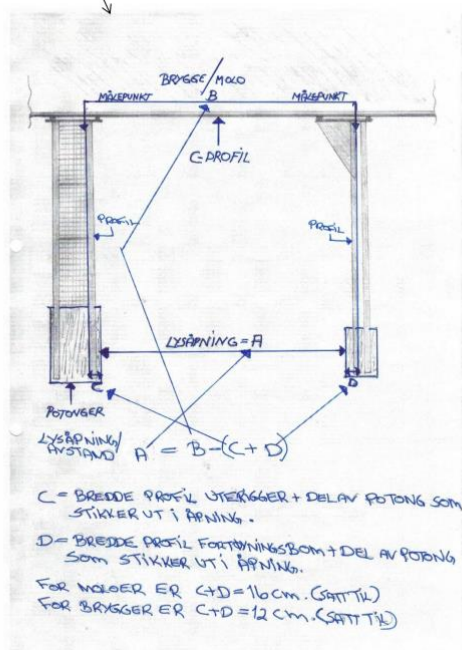 BRYGGE/MOLO
MÅLEPUNKT B MÅLEPUNKT
C-PROFIL
PROFIL PROFIL
LYSÅPNING = A
C D
POTONGER
LYSÅPNING/
AVSTAND A = B-(C+D)
C = BREDDE PROFIL UTERIGGER + DEL AV POTONG SOM
STIKKER UT I ÅPNING.
D = BREDDE PROFIL FORTØYNINGSBOM + DEL AV POTONG
SOM STIKKER UT I ÅPNING.
FOR MOLOER ER C+D = 16 CM. (SATT TIL)
FOR BRYGGER ER C+D = 12 CM. (SATT TIL)